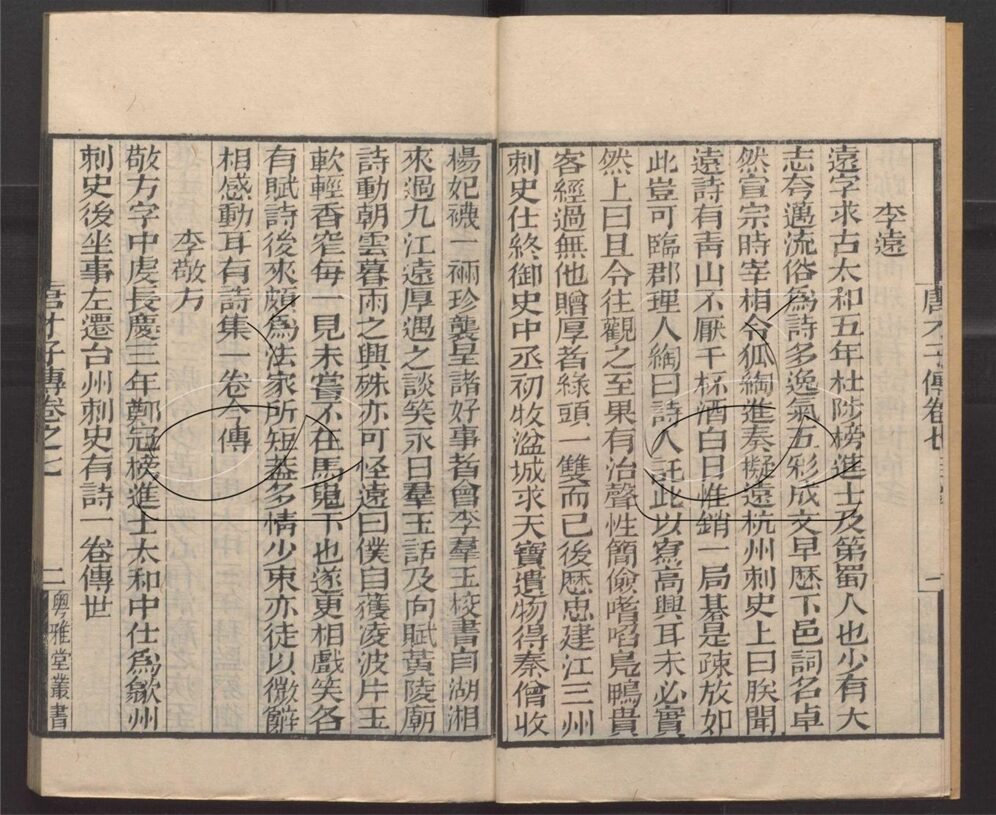 唐才子傳卷七
李遠
遠字求古太和五年杜陟榜進士及第蜀人也少有大
志夸邁流俗爲詩多逸氣五彩成文早歷下邑詞名卓
然宣宗時宰相令狐綯進奏擬遠杭州刺史上曰朕聞
遠詩有靑山不厭千杯酒白日惟銷一局棊是疎放如
此豈可臨郡理人綯曰詩人託此以寫高興耳未必實
然上曰且令往觀之至果有治聲性簡儉嗜啗鳧鴨貴
客經過無他贈厚者綠頭一雙而已後歷忠建江三州
刺史仕終御史中丞初牧湓城求天寶遺物得秦僧收
楊妃襪一裲珍襲呈諸好事者會李羣玉校書自湖湘
來過九江遠厚遇之談笑永日羣玉話及向賦黃陵廟
詩動朝雲暮雨之興殊亦可怪遠曰僕自獲凌波片玉
軟輕香窄每一見未嘗不在馬嵬下也遂更相戲笑各
有賦詩後來頗爲法家所短葢多情少束亦徒以微辭
相感動耳有詩集一卷今傳
李敬方
敬方字中虔長慶三年鄭冠榜進士太和中仕爲歙州
刺史後坐事左遷台州刺史有詩一卷傳世
唐才子傳卷之七
二
粵雅堂叢書